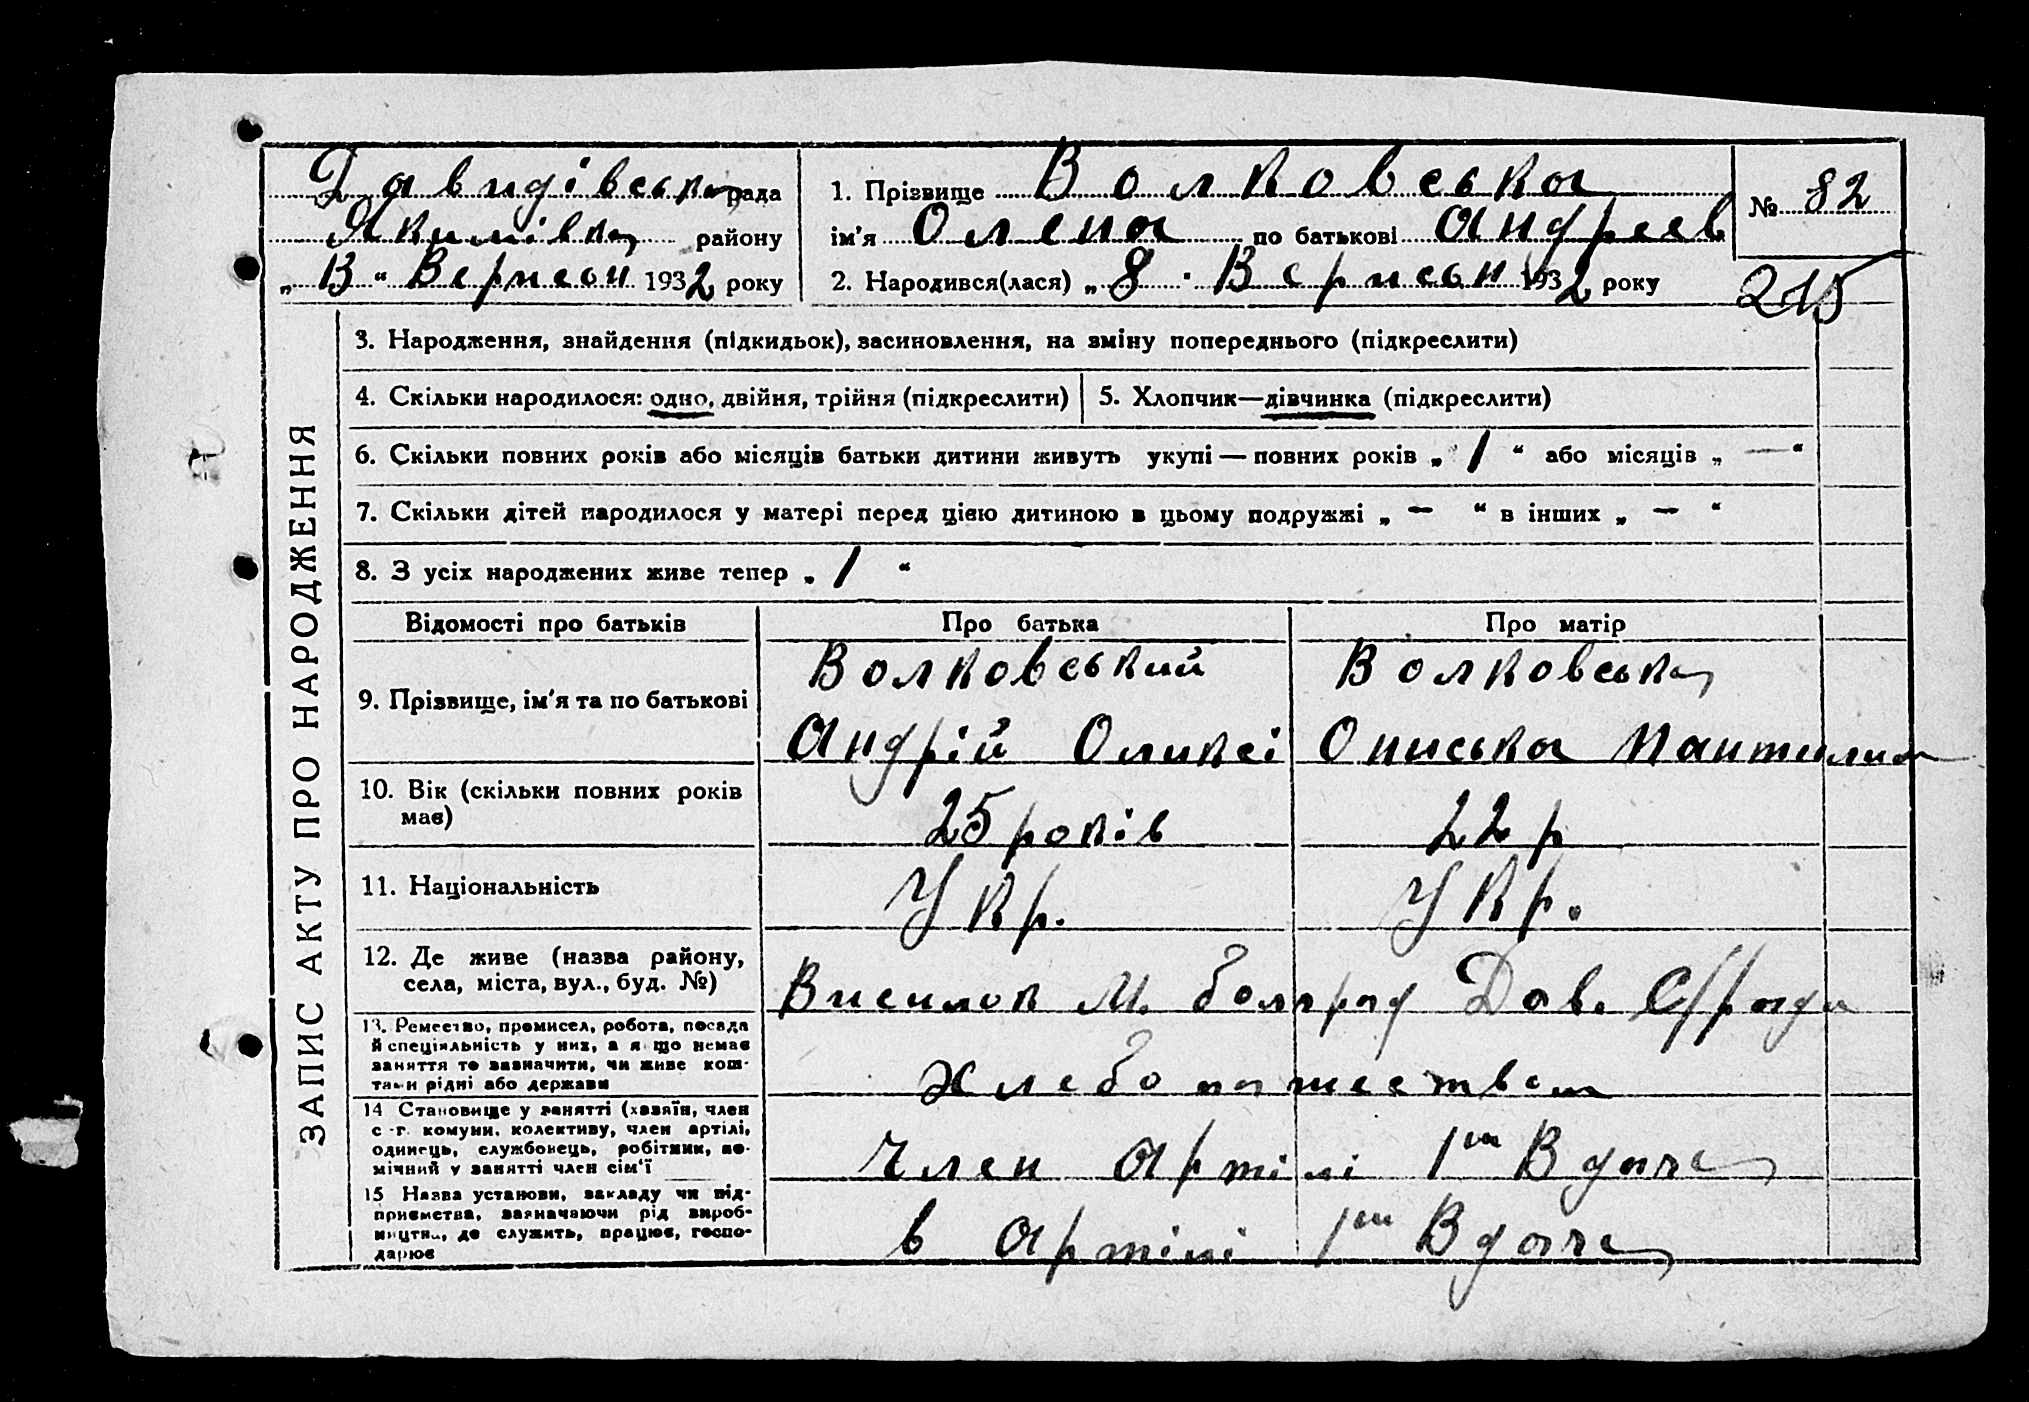 Давидівська рада
Якимівка району
„ 13 “ Вернсон 1932 року
1. Прізвище Волковська
ім'я Олена по батькові Андреев
2. Народився(лася) „ 8 . Вернсон 1932 року
№ 82
215
ЗАПИС АКТУ ПРО НАРОДЖЕННЯ
3. Народження, знайдення (підкидьок), засиновлення, на зміну попереднього (підкреслити)
4. Скільки народилося: одно, двійня, трійня (підкреслити)
5. Хлопчик—дівчинка (підкреслити)
6. Скільки повних років або місяців батьки дитини живуть укупі — повних років „ 1 “ або місяців „ — “
7. Скільки дітей народилося у матері перед цією дитиною в цьому подружжі „ — “ в інших „ — “
8. З усіх народжених живе тепер „ 1 “
Відомості про батьків
Про батька
Про матір
9. Прізвище, ім'я та по батькові
Волковський
Андрій Оликсі
Волковська
Ониська Пантилим
10. Вік (скільки повних років
має)
25 років
22 р
11. Національність
Укр.
Укр.
12. Де живе (назва району,
села, міста, вул., буд. №)
Висилок М. Болград Дав. С/ради
13. Ремество, промисел, робота, посада
й спеціяльність у них, а якщо немає
заняття то зазначити, чи живе кош-
тами рідні або держави
Хлебопашеством
14 Становище у занятті (хазяїн, член
с.-г. комуни, колективу, член артілі,
одинець, службовець, робітник, по-
мічний у занятті член сім'ї
Член артілі 1го Вдача
15 Назва установи, закладу чи під-
приємства, зазначаючи рід вироб-
ництва, де служить, працює, госпо-
дарює
в артілі 1го Вдача